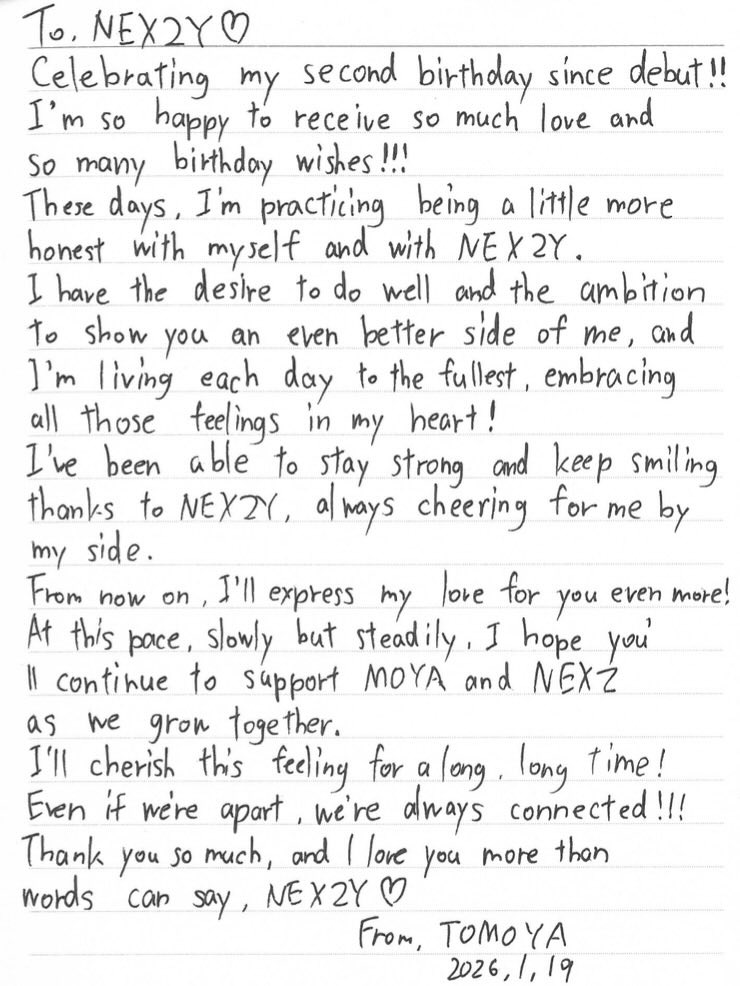 To. NEX2Y♡
Celebrating my second birthday since debut!!
I'm so happy to receive so much love and
so many birthday wishes!!!
These days, I'm practicing being a little more
honest with myself and with NEX2Y.
I have the desire to do well and the ambition
to show you an even better side of me, and
I'm living each day to the fullest, embracing
all those feelings in my heart!
I've been able to stay strong and keep smiling
thanks to NEX2Y, always cheering for me by
my side.
From now on, I'll express my love for you even more!
At this pace, slowly but steadily, I hope you'
ll continue to support MOYA and NEXZ
as we grow together.
I'll cherish this feeling for a long, long time!
Even if we're apart, we're always connected!!!
Thank you so much, and I love you more than
words can say, NEX2Y♡
From, TOMOYA
2026,1,19